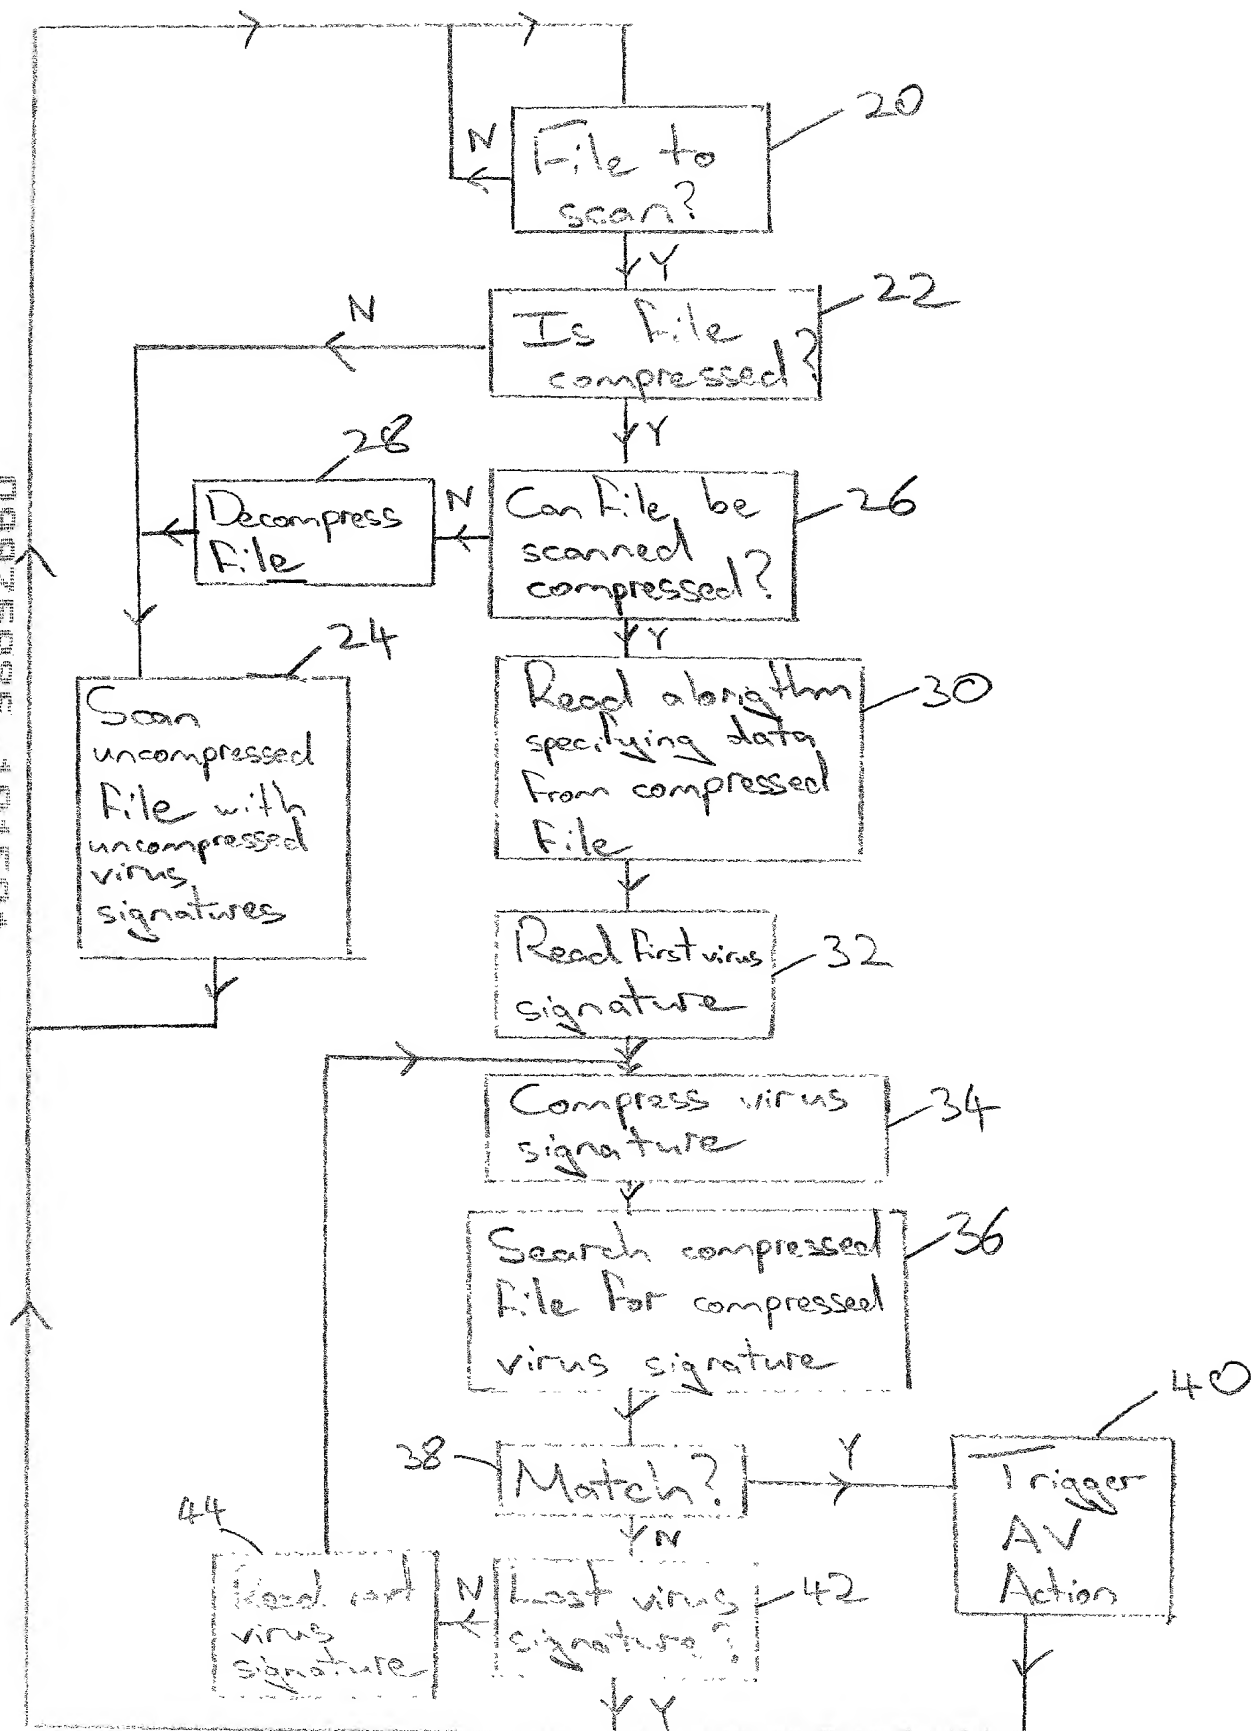 20
N
File to
scan?
Y
22
N
Is File
compressed?
Y
28
N
Decompress
File
Can File be
scanned
compressed?
26
Y
24
Scan
uncompressed
File with
uncompressed
virus
signatures
Read aborigthm
specifying data
From compressed
File
30
Read First virus
signature
32
Compress virus
signature
34
Search compressed
File For compressed
virus signature
36
38
Match?
Y
40
Trigger
AV
Action
N
44
Read
virus
signature
N
Last virus
signature?
42
Y